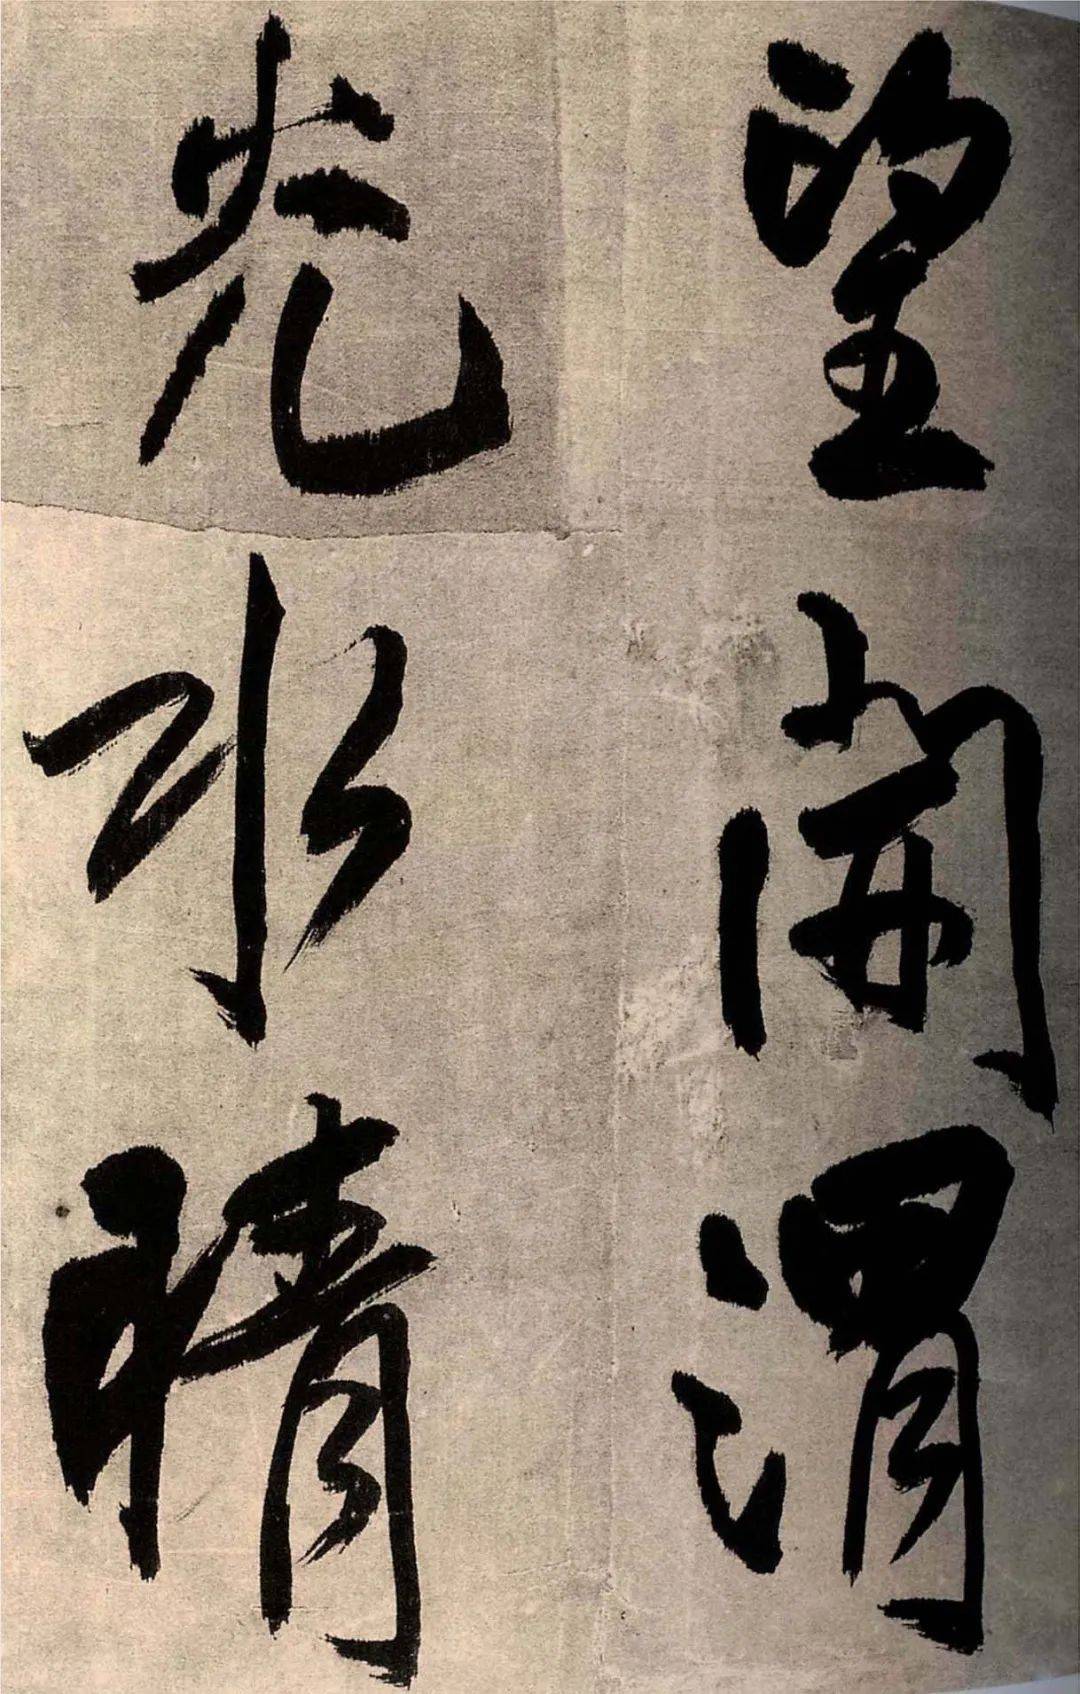 望開渭
光水晴